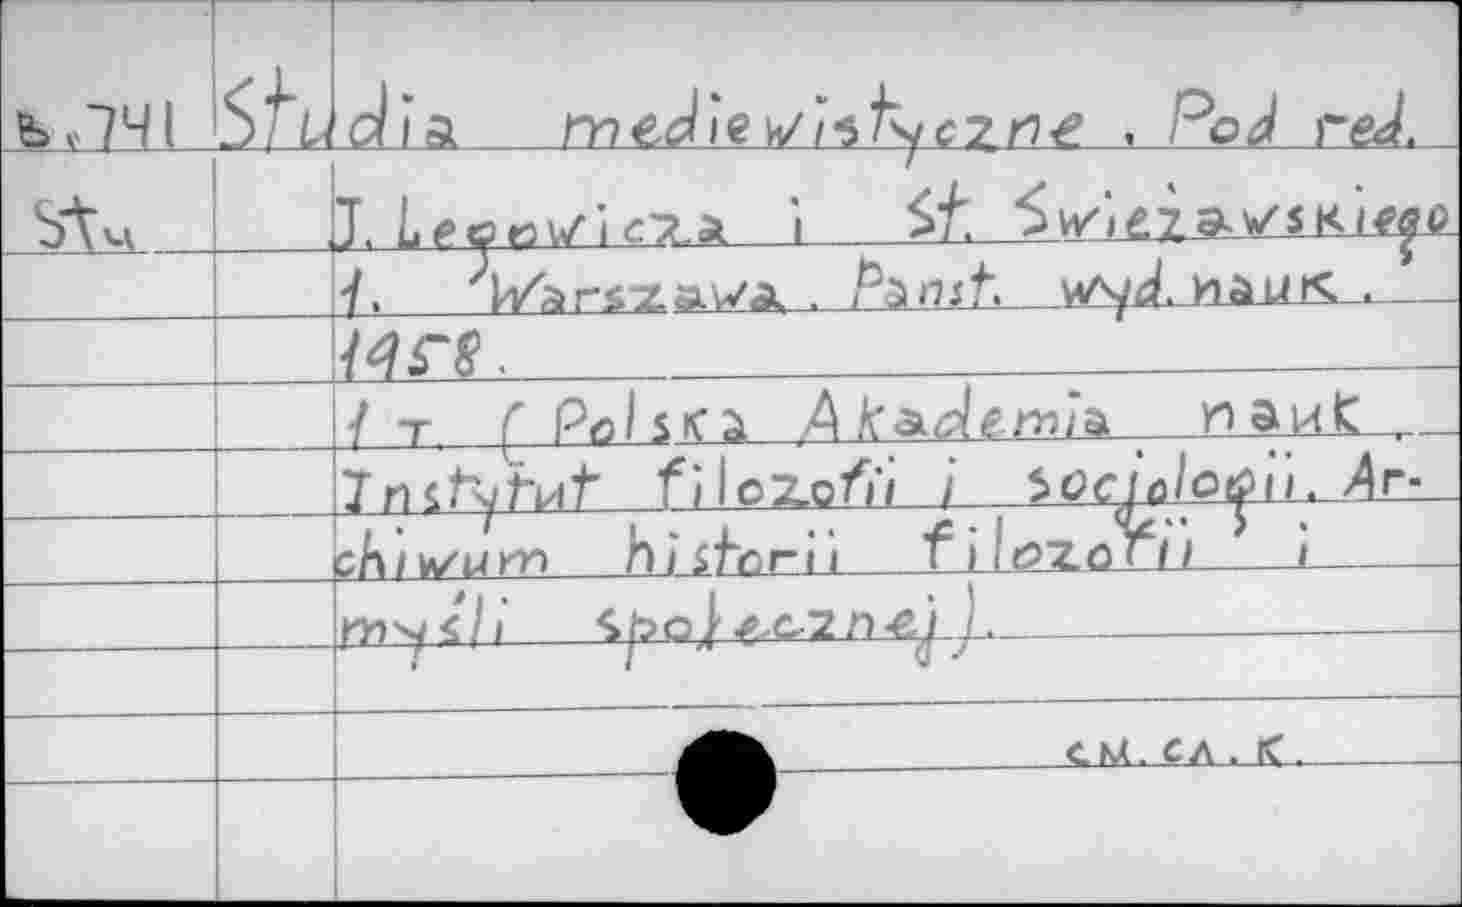 Ь.741 Studia mediewistyczne . Pod red.
Stu J. Legowicza i St. Świeżawskiego
1. Warszawa . Państ. wyd. nauk .
1958.
1 т. ( Polska Akademia nauk .
Instytut filozofii i sociologii. Ar-
chiwum historii filozofii i
myśli społecznej ).
см. сл. к.